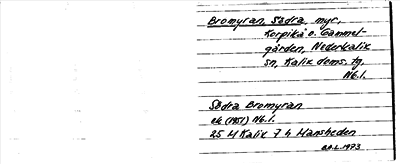 Bromyran, Södra, myr,
Korpikå o. Gammel-
gården, Nederkalix
sn, Kalix doms. tg,
Nb.l.
Södra Bromyran
ek (1951) Nb.l.
25 M Kalix 7 h Marsheden
1973